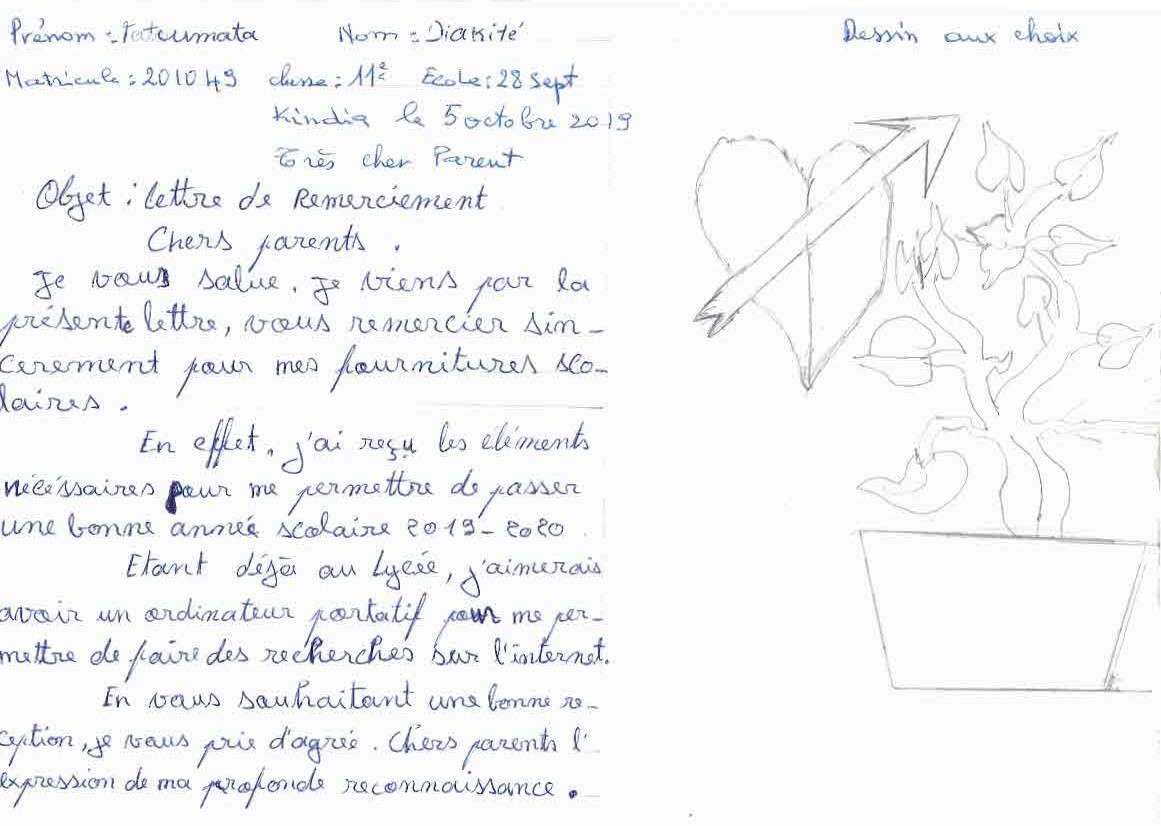 Prénom : Fatoumata Nom : Diakité
Dessin aux choix
Matricule : 201049 classe : 11e Ecole : 28 sept
Kindia le 5 octobre 2019
Très cher Parent
Objet : lettre de Remerciement
Chers parents.
Je vous salue. Je viens par la
présente lettre, vous remercier sin-
cerement pour mes fournitures sco-
laires.
En effet, j'ai reçu les éléments
nécéssaires pour me permettre de passer
une bonne année scolaire 2019-2020
Etant déjà au Lycée, j'aimerais
avoir un ordinateur portatif pour me per-
mettre de faire des recherches sur l'internet.
En vous souhaitant une bonne re-
ception, je vous prie d'agrée. Chers parents l'
expression de ma profonde reconnaissance.